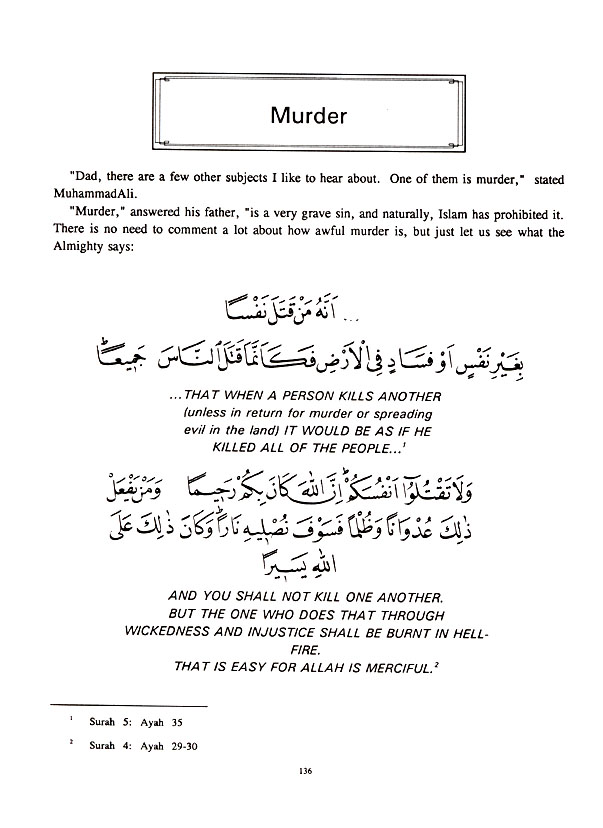 Murder
"Dad, there are a few other subjects I like to hear about. One of them is murder," stated
MuhammadAli.
"Murder," answered his father, "is a very grave sin, and naturally, Islam has prohibited it.
There is no need to comment a lot about how awful murder is, but just let us see what the
Almighty says:
... اَنَّهُ مَنْ قَتَلَ نَفْسًا
بِغَيْرِ نَفْسٍ اَوْ فَسَادٍ فِي الْاَرْضِ فَكَاَنَّمَا قَتَلَ النَّاسَ جَمِيعًا
...THAT WHEN A PERSON KILLS ANOTHER
(unless in return for murder or spreading
evil in the land) IT WOULD BE AS IF HE
KILLED ALL OF THE PEOPLE...¹
وَلَا تَقْتُلُوٓا اَنْفُسَكُمْ اِنَّ اللهَ كَانَ بِكُمْ رَحِيمًا وَمَنْ يَفْعَلْ
ذٰلِكَ عُدْوَانًا وَظُلْمًا فَسَوْفَ نُصْلِيهِ نَارًا وَكَانَ ذٰلِكَ عَلَى
اللهِ يَسِيرًا
AND YOU SHALL NOT KILL ONE ANOTHER.
BUT THE ONE WHO DOES THAT THROUGH
WICKEDNESS AND INJUSTICE SHALL BE BURNT IN HELL-
FIRE.
THAT IS EASY FOR ALLAH IS MERCIFUL.²
¹ Surah 5: Ayah 35
² Surah 4: Ayah 29-30
136